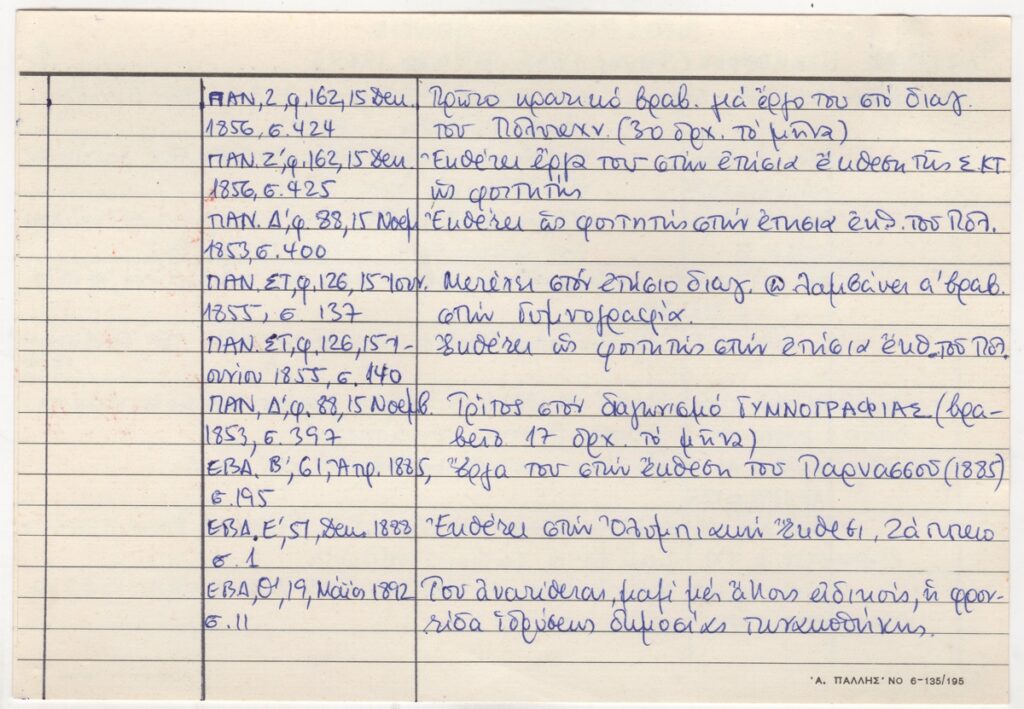 ΠΑΝ, Ζ, φ. 162, 15 Δεκ. Πρῶτο κρατικό βραβ. γιά ἔργο του στό διαγ.
1856, σ. 424 του Πολυτεχν. (30 δρχ. τό μῆνα)
ΠΑΝ. Ζ', φ. 162, 15 Δεκ. Ἐκθέτει ἔργα του στήν ἐτήσια ἔκθεση τῆς Σ.ΚΤ
1856, σ. 425 ὡς φοιτητής
ΠΑΝ. Δ', φ. 88, 15 Νοεμ Ἐκθέτει ὡς φοιτητής στήν ἐτήσια ἐκθ. του Πολ.
1853, σ. 400
ΠΑΝ. ΣΤ, φ. 126, 15 Ἰουν. Μετέχει στόν ἐτήσιο διαγ. λαμβάνει α' βραβ.
1855, σ. 137 στήν γυμνογραφία.
ΠΑΝ. ΣΤ, φ. 126, 15 Ἰ- Ἐκθέτει ὡς φοιτητής στήν ἐτήσια ἐκθ. του Πολ.
ουνίου 1855, σ. 140
ΠΑΝ, Δ', φ. 88, 15 Νοεμβ. Τρίτος στόν διαγωνισμό ΓΥΜΝΟΓΡΑΦΙΑΣ (βρα-
1853, σ. 397 βεῖο 17 δρχ. τό μῆνα)
ΕΒΔ. Β', 61, Ἀπρ. 1885, Ἔργα του στήν ἔκθεση του Παρνασσοῦ (1885)
σ. 195
ΕΒΔ. Ε', 51, Δεκ. 1888 Ἐκθέτει στήν Ὀλυμπιακή Ἔκθεσι, Ζάππειο
σ. 1
ΕΒΔ, Θ', 19, Μάϊος 1892 Του ἀνατίθεται, μαζί μέ ἄλλους εἰδικούς, ἡ φρον-
σ. 11 τίδα ἱδρύσεως δημοσίας πινακοθήκης.
'Α. ΠΑΛΛΗΣ' ΝΟ 6-135/195